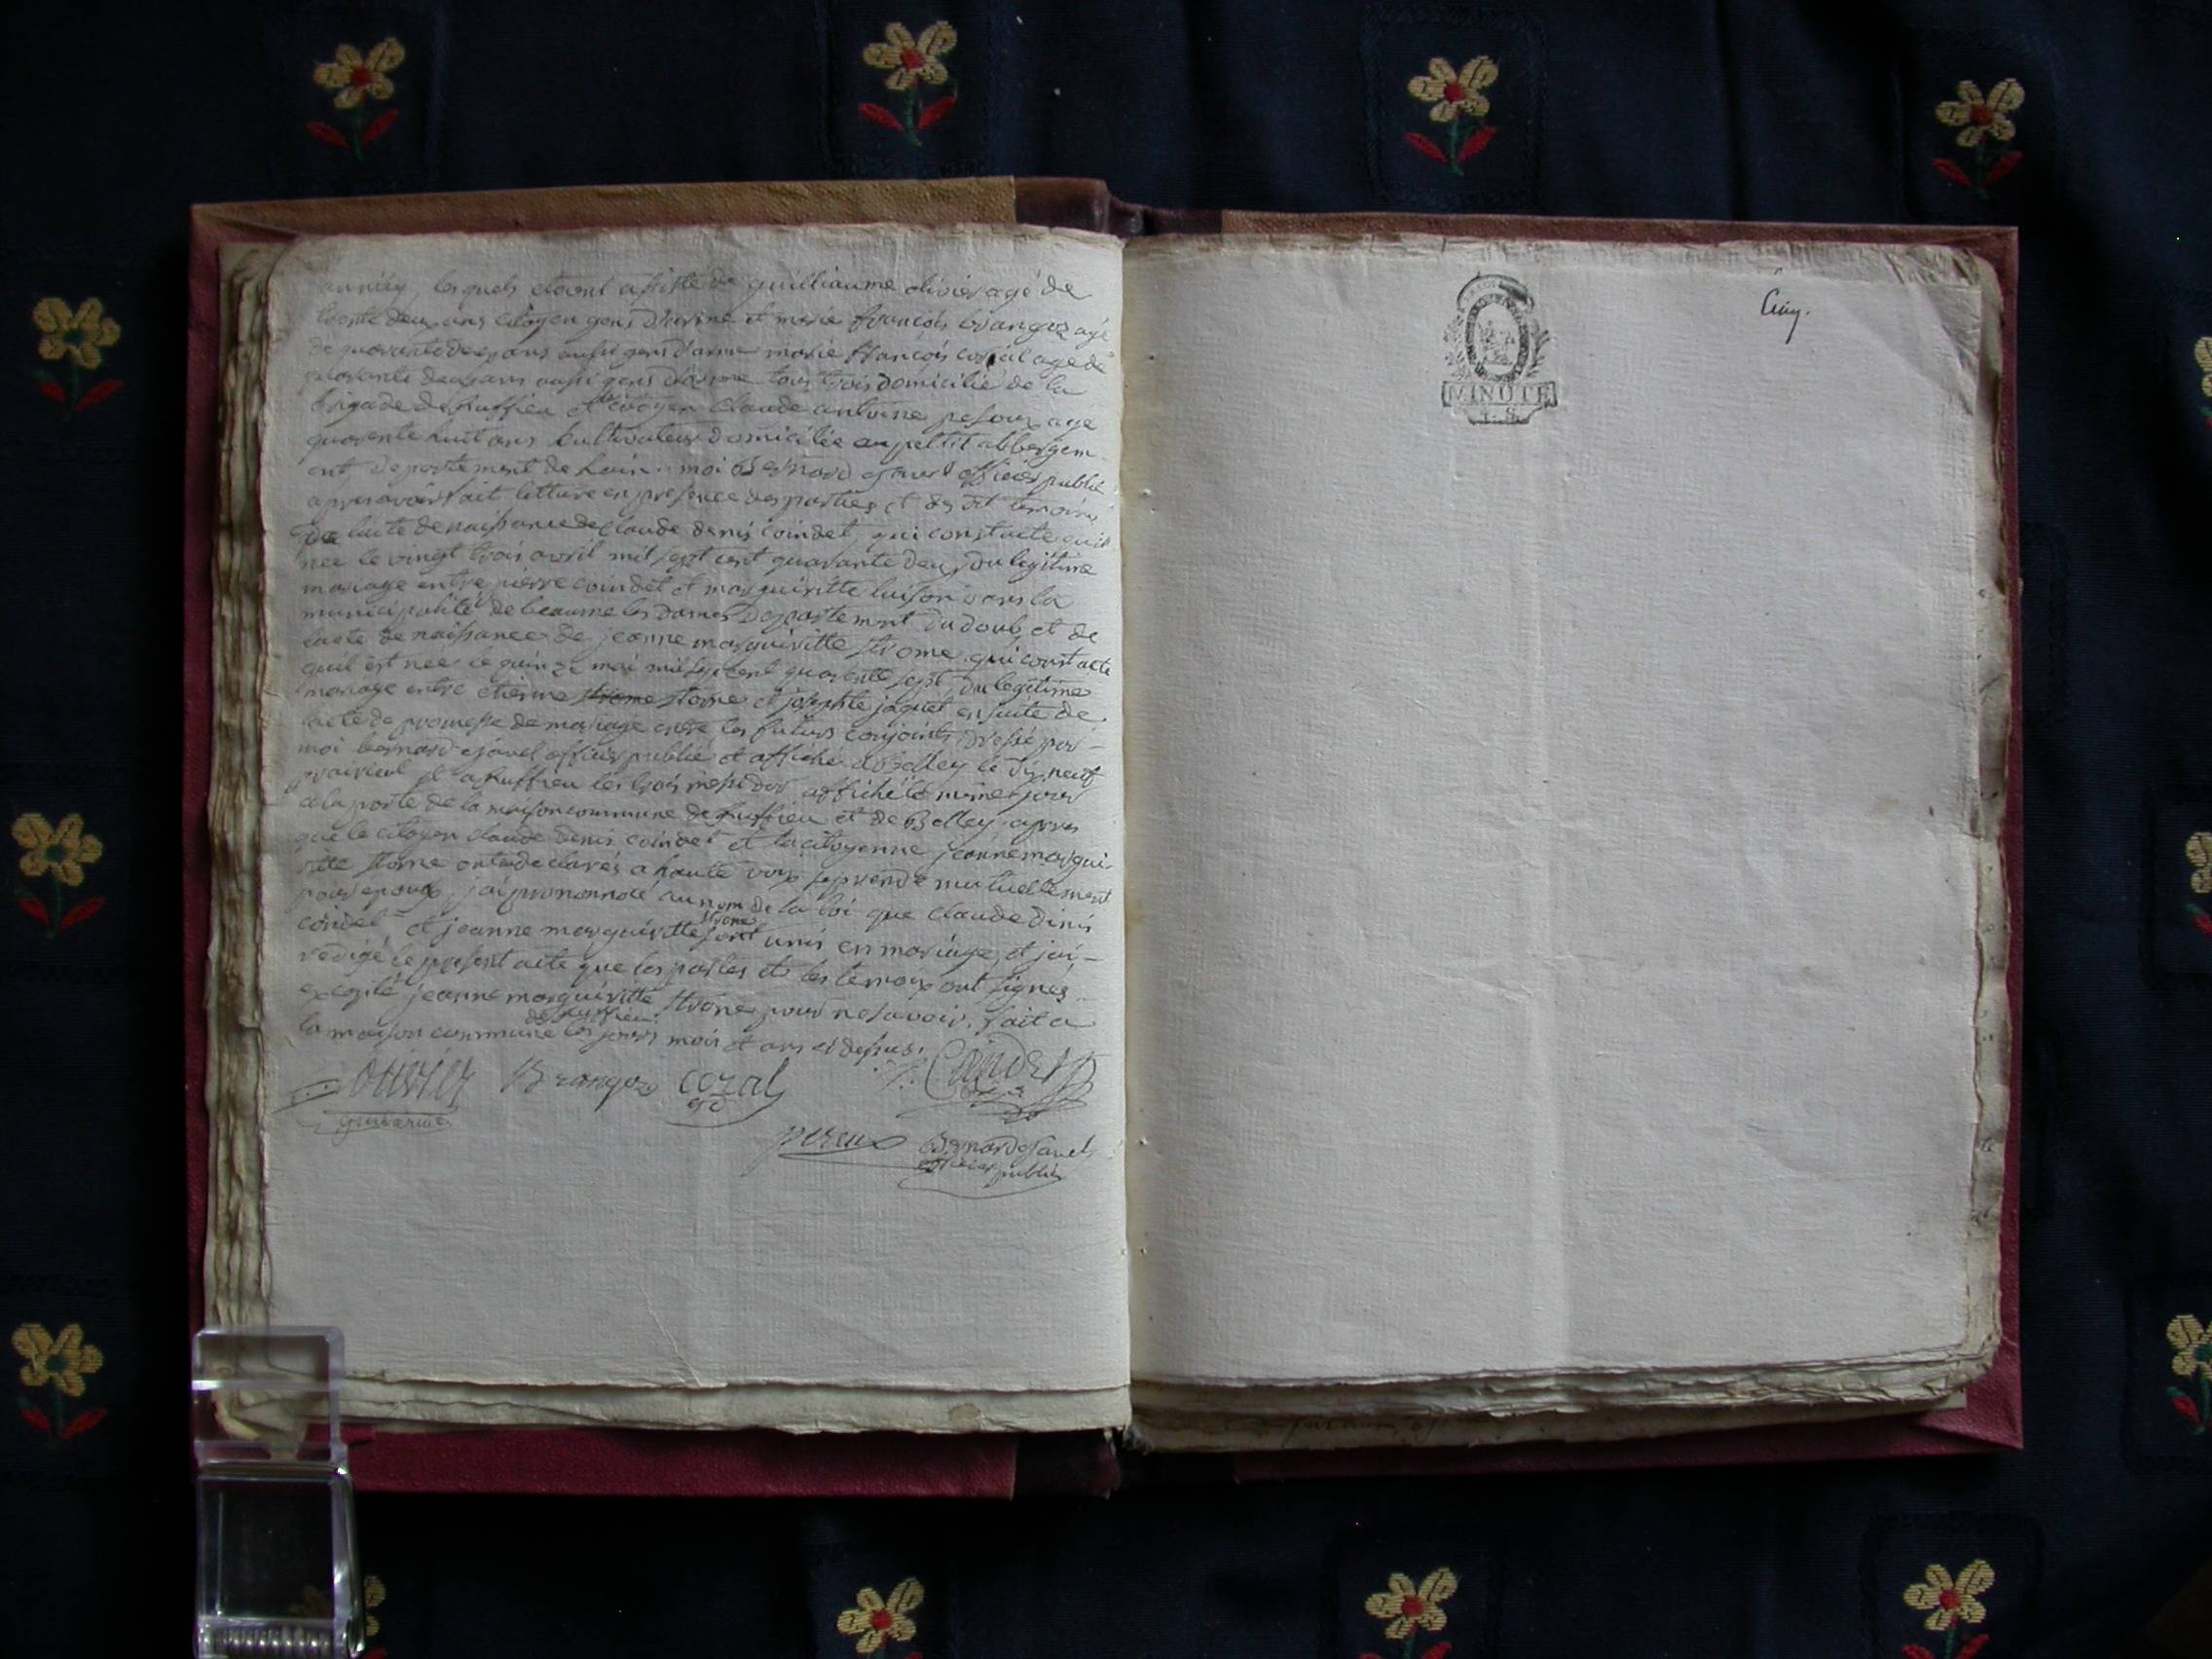 lesquels etoient assisté de guilliaume olivier agé de
trente deux ans citoyen gens d'arme et marie françois brangoz agé
de quarante deux ans aussi gens d'arme marie françois cozal agé de
quarante deux ans aussi gens d'arme tous trois domicilié de la
brigade de Ruffieu et citoyen Claude antoine agé
quarente huit ans Cultivateur domicilié au pettit abbergem
ent departement de Lain moi Bernard officier publié
apres avoir fait letture en presence des parties et des dit temoins
De lacte de naissance de Claude denis coindet, qui constacte quil
nee le vingt trois avril mil sept cent quarante deux du legitime
mariage entre pierre coindet et marguiritte luison dans la
municipalité de beaume les dames Departement du doub et de
lacte de naissance de jeanne marguiritte strome qui constacte
quil est nee le quinze mai mil sept cent quarente sept du legitime
mariage entre etienne strome storne et josephte jaquet en suite de
lacte de promesse de mariage entre les futurs conjoints dressé par
moi bernard officier publié et affiché a Belley le dix neuf
prairieal et a Ruffieu les trois mesidor affiché le meme jour
a la porte de la maison commune de Ruffieu et de Belley apres
que le citoyen claude denis coindet et la citoyenne jeanne margui-
ritte storne ont declarés a haute voix se prendre mutuellement
pour epoux, j'ai prononncé au nom de la loi que claude dinis
coidet et jeanne marguiritte strone sont unis en mariage et j'ai
redigé le present acte que les parties et les temoix ont signés
exepté jeanne marguiritte strone pour ne savoir, fait a
la maison commune de Ruffieu les jours mois et ans ci dessus.
olivier Brangoz cozal Coindet
gendarme gd
pereux Bernard
officier publié
Cinq.
MINUTE